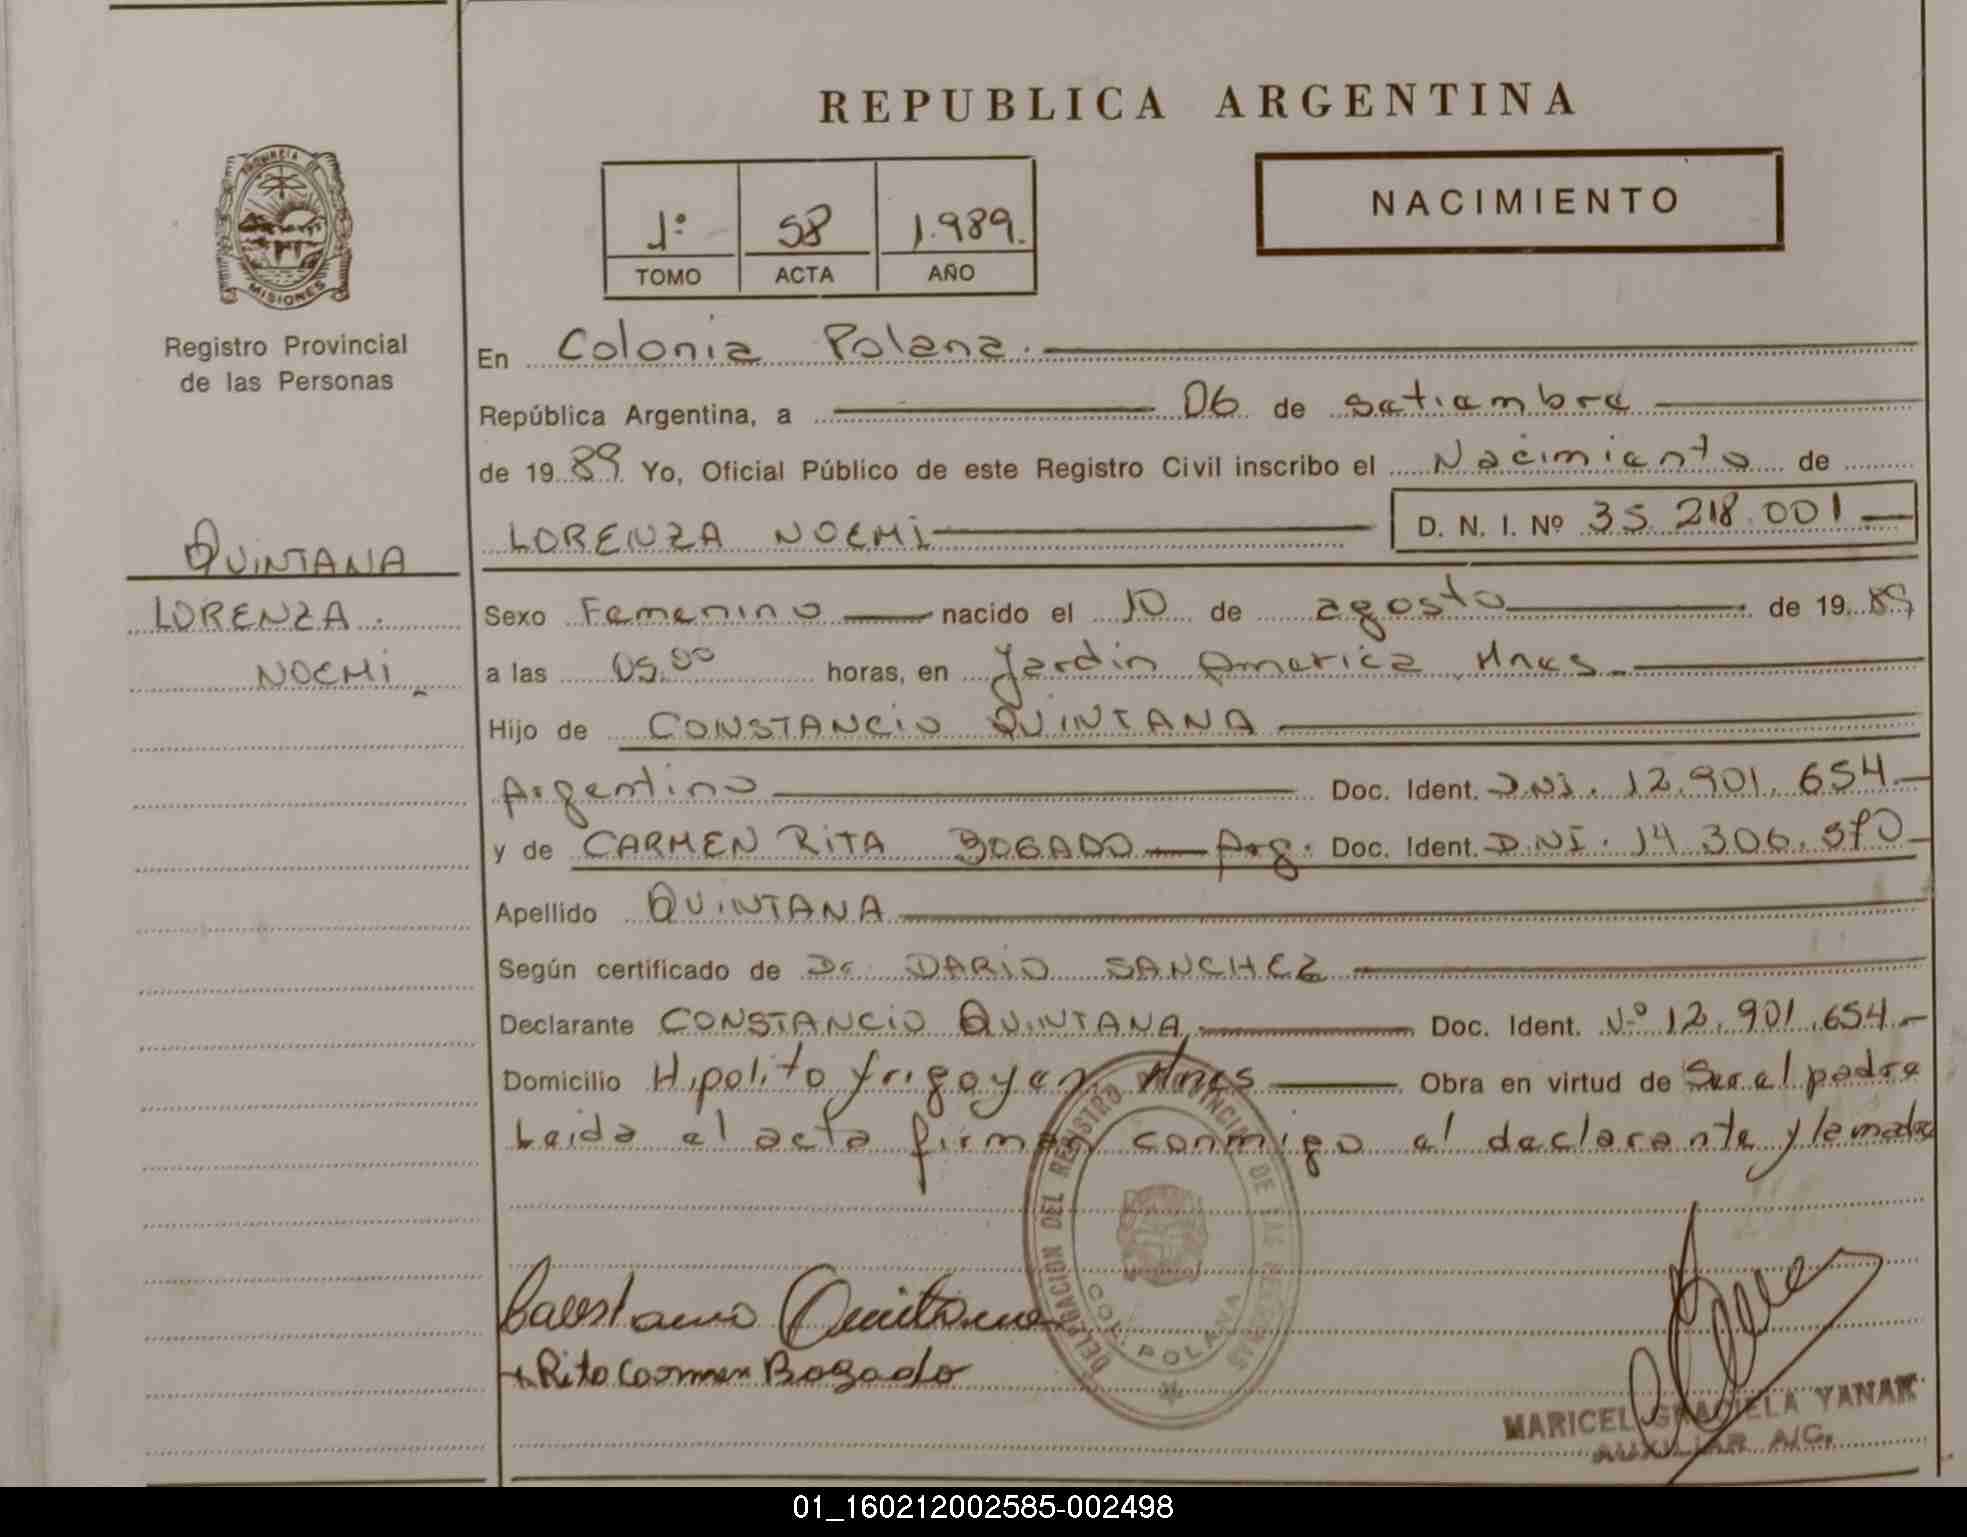 REPUBLICA ARGENTINA
PROVINCIA DE
MISIONES
Registro Provincial
de las Personas
1º 58 1.989.
TOMO ACTA AÑO
NACIMIENTO
QUINTANA
LORENZA.
NOEMI.
En Colonia Polana.
República Argentina, a 06 de setiembre
de 1989 Yo, Oficial Público de este Registro Civil inscribo el Nacimiento de
LORENZA NOEMI D. N. I. Nº 35.218.001
Sexo Femenino nacido el 10 de agosto de 1989
a las 05.00 horas, en Jardin America, Mnes.
Hijo de CONSTANCIO QUINTANA
Argentino Doc. Ident. D.NI. 12.901.654.
y de CARMEN RITA BOGADO Arg. Doc. Ident. D.NI. 14.306.
Apellido QUINTANA
Según certificado de Dr. DARIO SANCHEZ
Declarante CONSTANCIO QUINTANA, Doc. Ident. Nº 12.901.654.
Domicilio Hipolito Yrigoyen Mnes Obra en virtud de Ser el padre
Leida el acta firman conmigo el declarante y la madre
DELEGACION DEL REGISTRO PROVINCIAL DE LAS PERSONAS
COL. POLANA
Quintana
Rita Carmen Bogado
MARICEL GRACIELA YANAK
AUXILIAR A/C.
01_160212002585-002498